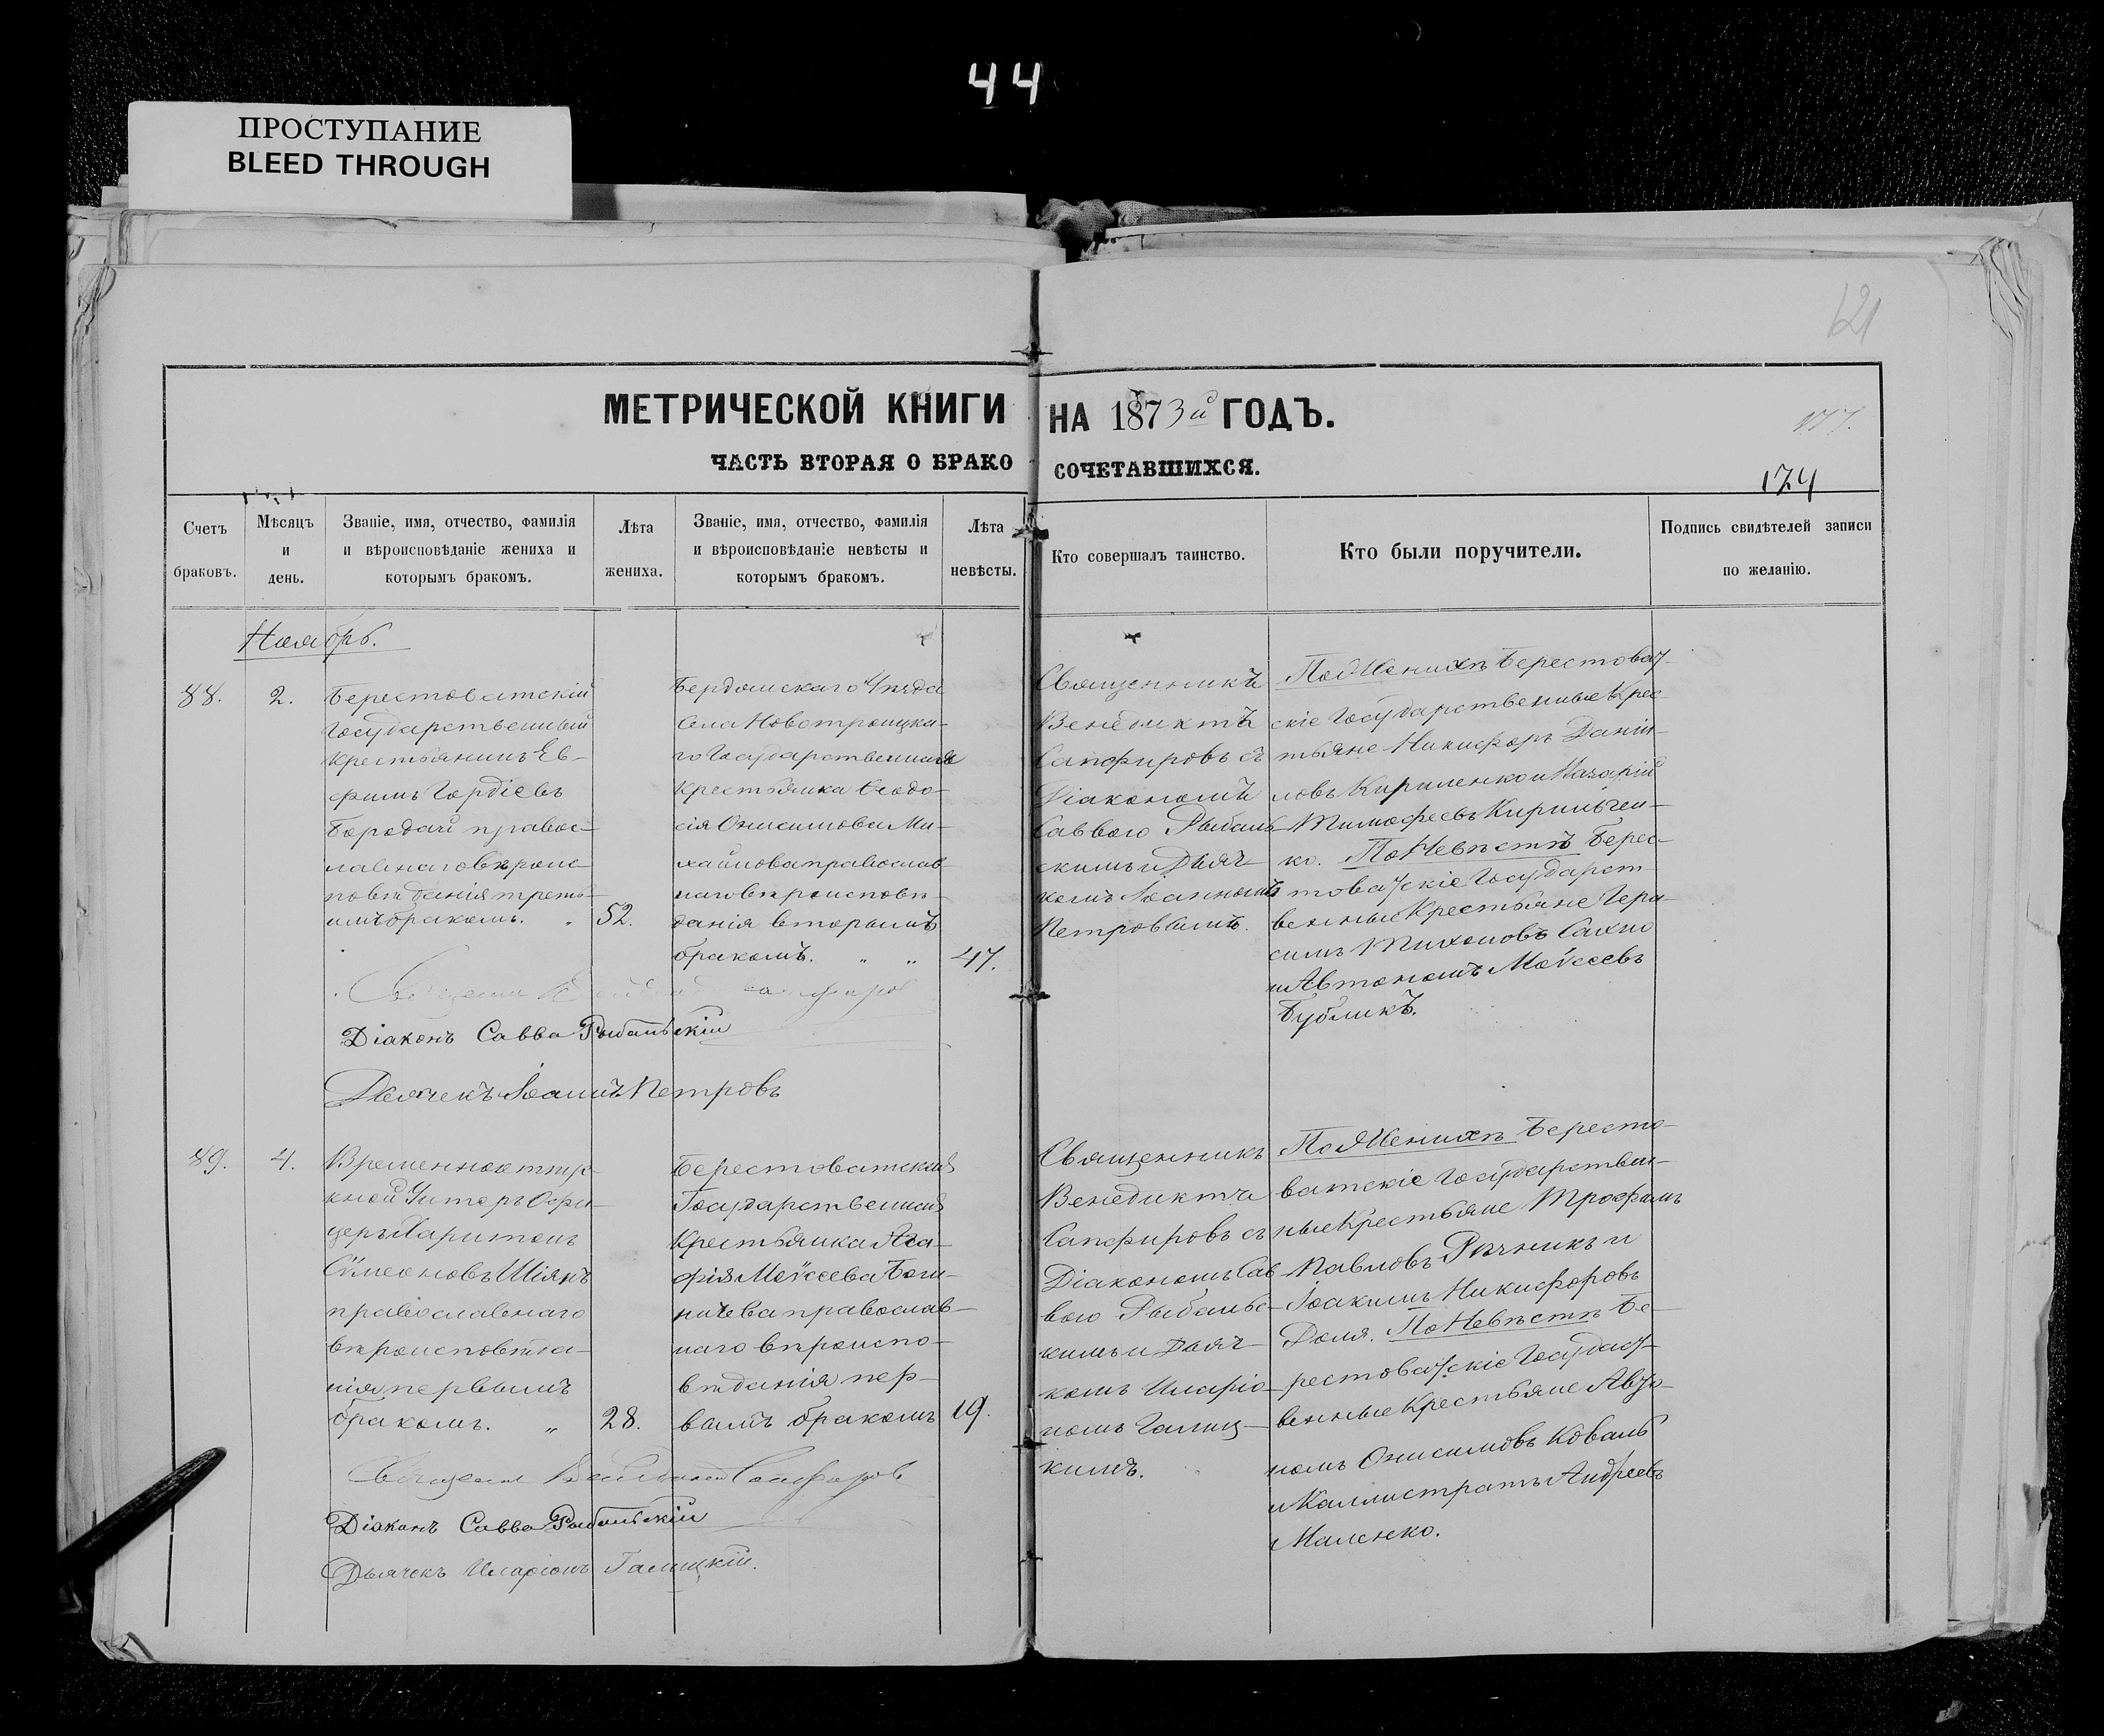 44
ПРОСТУПАНИЕ
BLEED THROUGH
121
МЕТРИЧЕСКОЙ КНИГИ НА 1873й ГОДЪ.
177.
ЧАСТЬ ВТОРАЯ О БРАКОСОЧЕТАВШИХСЯ.
174
Счетъ
браковъ.
Мѣсяцъ
и
день.
Званіе, имя, отчество, фамилія
и вѣроисповѣданіе жениха и
которымъ бракомъ.
Лѣта
жениха.
Званіе, имя, отчество, фамилія
и вѣроисповѣданіе невѣсты и
которымъ бракомъ.
Лѣта
невѣсты.
Кто совершалъ таинство.
Кто были поручители.
Подпись свидѣтелей записи
по желанію.
Ноябрь.
88.
2.
Берестоватскій
Государственный
Крестьянинъ Ев-
фимъ Гордіевъ
Бородай правос-
лавнаго вѣроис
повѣданія треть-
имъ бракомъ. „
52.
Бердянскаго Уѣзда
Села Новотроицка-
го Государственная
Крестьянка Ѳеодо-
сія Онисимова Ми-
хайлова православ-
наго вѣроисповѣ-
данія вторымъ
бракомъ. „ „
47.
Священникъ
Венедиктъ
Сапфировъ съ
Діакономъ
Саввою Рыбаль-
скимъ и Дьяч-
комъ Іоанномъ
Петровымъ.
По Женихѣ Берестоват-
скіе Государственные Крес-
тьяне Никифоръ Даніи-
ловъ Кириленко и Назарій
Тимофеевъ Кириличен-
ко. По Невѣстѣ Берес-
товатскіе Государст-
венные Крестьяне Гера-
симъ Тихоновъ Сахно
и Автономъ Моѵсеевъ
Бубликъ.
Діаконъ Савва Рыбальскій
Дьячекъ Іоаннъ Петровъ
89.
4.
Временноотпус-
кной Унтеръ Офи-
церъ Харитонъ
Сѵмеоновъ Шіянъ
православнаго
вѣроисповѣда-
нія первымъ
бракомъ. „
28.
Берестоватская
Государственная
Крестьянка Ага-
фія Моѵсеева
православ-
наго вѣроиспо-
вѣданія пер-
вымъ бракомъ
19.
Священникъ
Венедиктъ
Сапфировъ съ
Діакономъ Сав-
вою Рыбальс-
кимъ и Дьяч-
комъ Иларіо-
номъ Галиц-
кимъ.
По Женихѣ Бересто-
ватскіе Государствен-
ные Крестьяне Трофимъ
Павловъ Рѣзникъ и
Іоакимъ Никифоровъ
Доля. По Невѣстѣ Бе-
рестоватскіе Государст-
венные Крестьяне Авто-
номъ Онисимовъ Коваль
и Каллистратъ Андреевъ
Маленко.
Священникъ Венедиктъ Сапфировъ
Діаконъ Савва Рыбальскій
Дьячекъ Иларіонъ Галицкій.